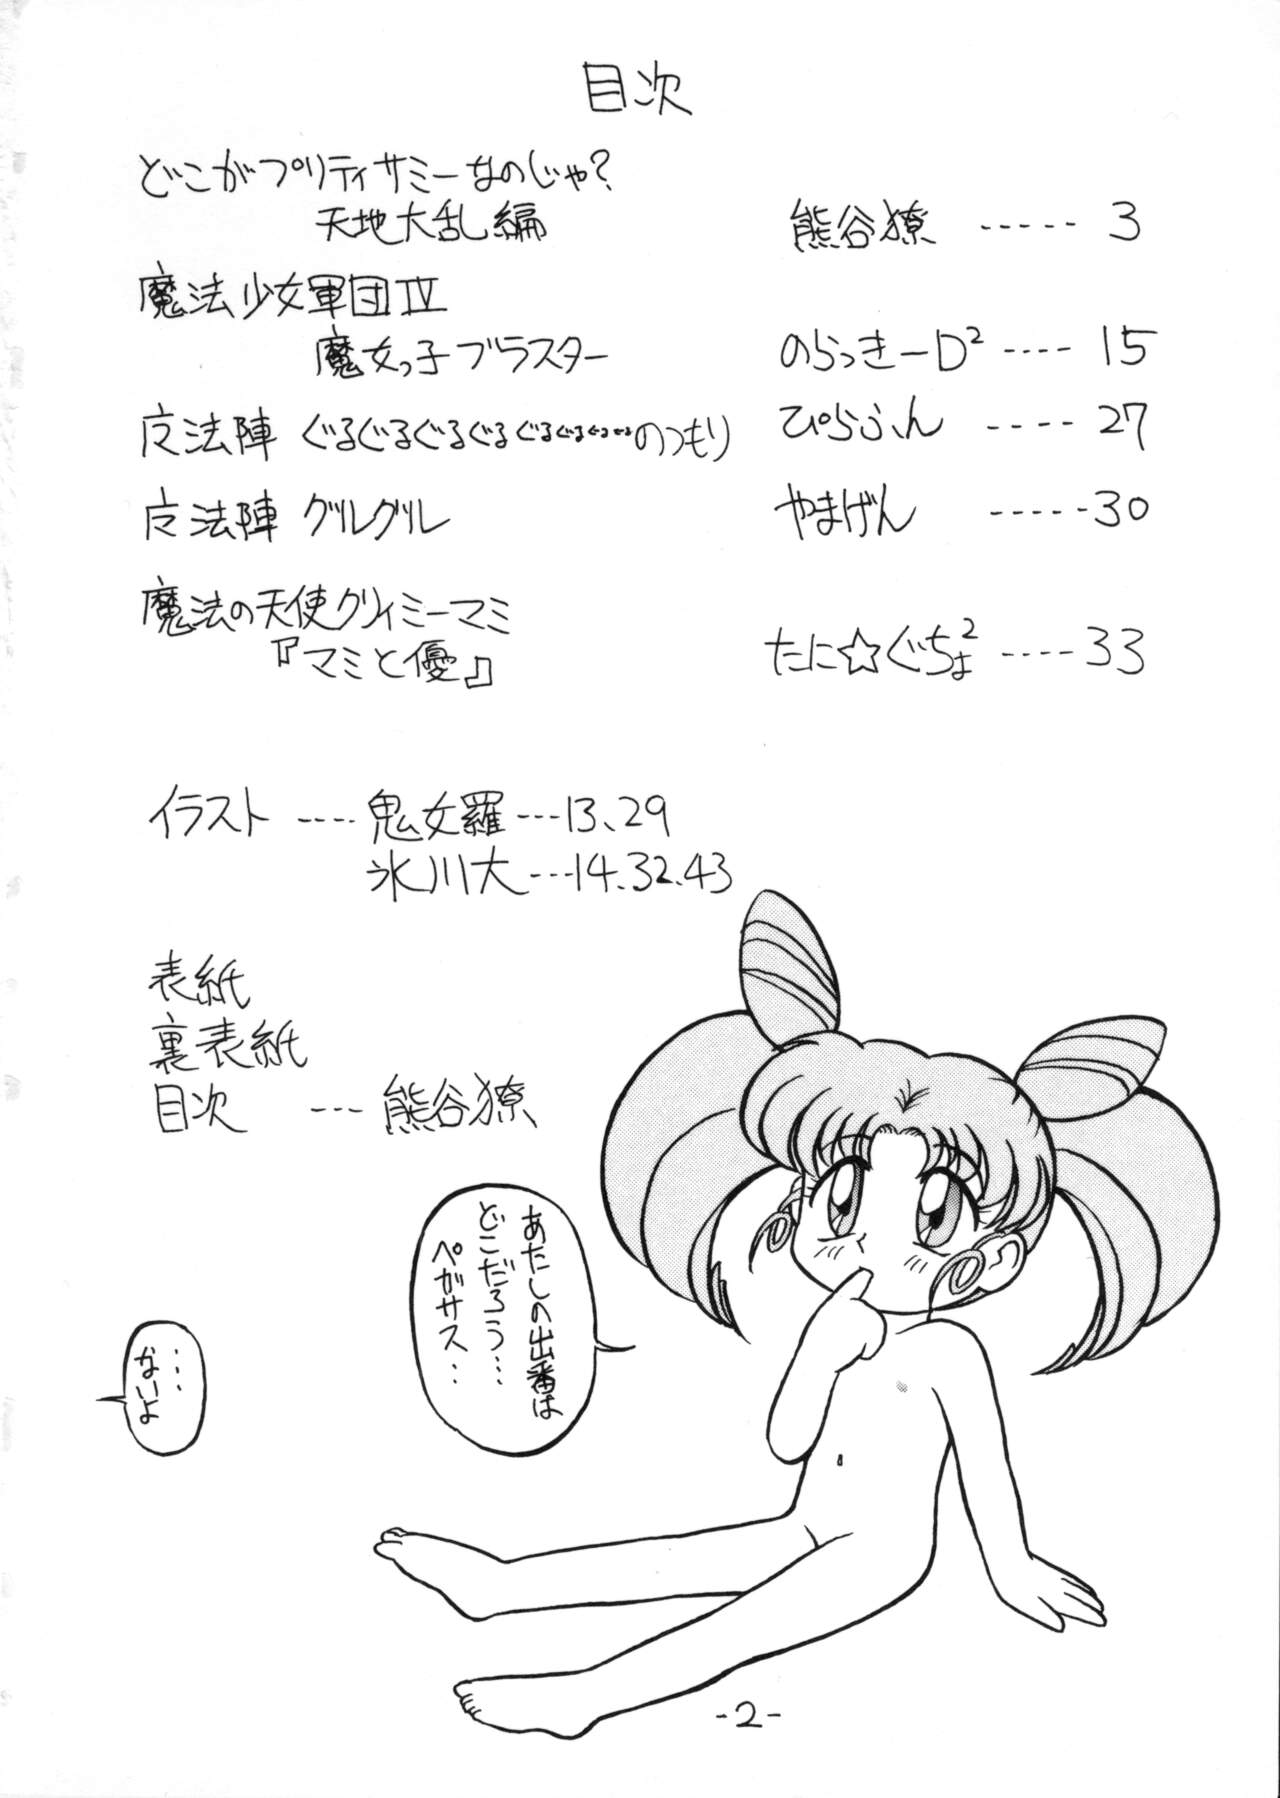 目次
どこがプリティサミーなのじゃ?
天地大乱編 熊谷獠 ----- 3
魔法少女軍団Ⅳ
魔女っ子ブラスター のらっきーD² ---- 15
法陣 ぐるぐるぐるぐるぐるぐるぐるぐるのつもり ぴらふん ---- 27
法陣 グルグル やまげん -----30
魔法の天使クリィミーマミ
『マミと優』 たに☆ぐちょ² ---- 33
イラスト ---- 鬼女羅 --- 13、29
氷川大 --- 14.32.43
表紙
裏表紙
目次 --- 熊谷獠
あたしの出番は
どこだろう…
ペガサス‥
…
ないよ
-2-